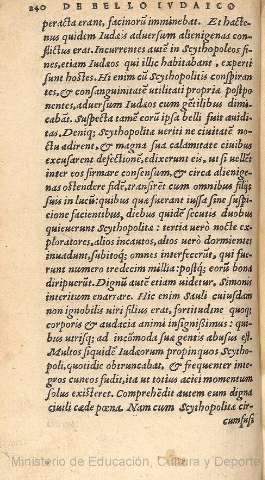 240 DE BELLO IVDAICO
peracta erant, facinorū imminebat. Et hacte-
nus quidem Iudæis aduersum alienigenas con
flictus erat. Incurrentes autē in Scythopoleos fi
nes, etiam Iudæos qui illic habitabant, experti
sunt hostes. Hi enim cū Scythopolitis conspiran
tes, & consanguinitatē utilitati propriæ postpo
nentes, aduersum Iudæos cum gētilibus dimi
cabāt. Suspecta tamē eorū ipsa belli fuit auidi
tas. Deniq; Scythopolitæ ueriti ne ciuitatē no-
ctu adirent, & magna sua calamitate ciuibus
excusarent defectionē, edixerunt eis, ut si uellēt
inter eos firmare consensum, & circa alienige-
nas ostendere fidē, transirēt cum omnibus filijs
suis in lucū: quibus quæ fuerant iussa sine suspi
cione facientibus, diebus quidē secutis duobus
quieuerunt Scythopolitæ: tertia uerò nocte ex
ploratores, alios incautos, alios uerò dormientes
inuadunt, subitoq; omnes interfecerūt, qui fue
runt numero tredecim millia: postq̄; eorū bona
diripuerūt. Dignū autē etiam uidetur, Simonis
interitum enarrare. Hic enim Sauli cuiusdam
non ignobilis uiri filius erat, fortitudine quoq;
corporis & audacia animi insignissimus: qui-
bus utrisq; ad incōmoda suæ gentis abusus est.
Multos siquidē Iudæorum propinquos Scytho-
poli, quotidie obtruncabat, & frequenter inte
gros cuneos fudit, ita ut totius aciei momentum
solus existeret. Comprehēdit autem eum digna
ciuili cæde pœna. Nam cum Scythopolitæ cir
cumfusi
Ministerio de Educación, Cultura y Deporte